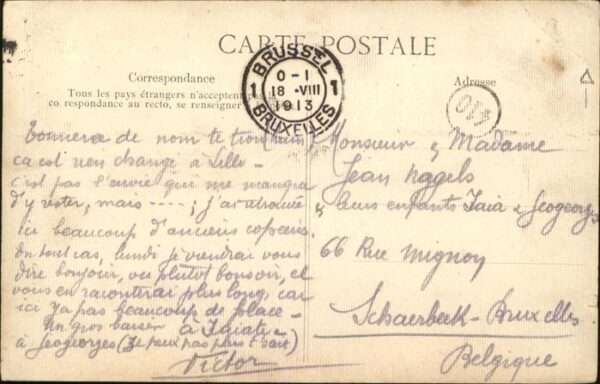 CARTE POSTALE
Correspondance
Tous les pays étrangers n'acceptent pas la
correspondance au recto, se renseigner
Adresse
BRUSSEL
1 0-1 1
18 ·VIII
1913
BRUXELLES
410
Tonnerre de nom te
ça est rien changé à Lille
c'est pas l'envie qui me manque
d'y rester, mais ----; j'ai retrouvé
ici beaucoup d'anciens copains.
En tout cas, lundi je viendrai vous
dire bonjour, ou plutôt bonsoir, et
vous en raconterai plus long, car
ici y a pas beaucoup de place -
Un gros baiser à
à Geogeorges (Je peux pas plus t'sais)
Victor
Monsieur & Madame
Jean Nagels
& leurs enfants & Geogeorges
66 Rue Mignon
Schaerbeek-Bruxelles
Belgique